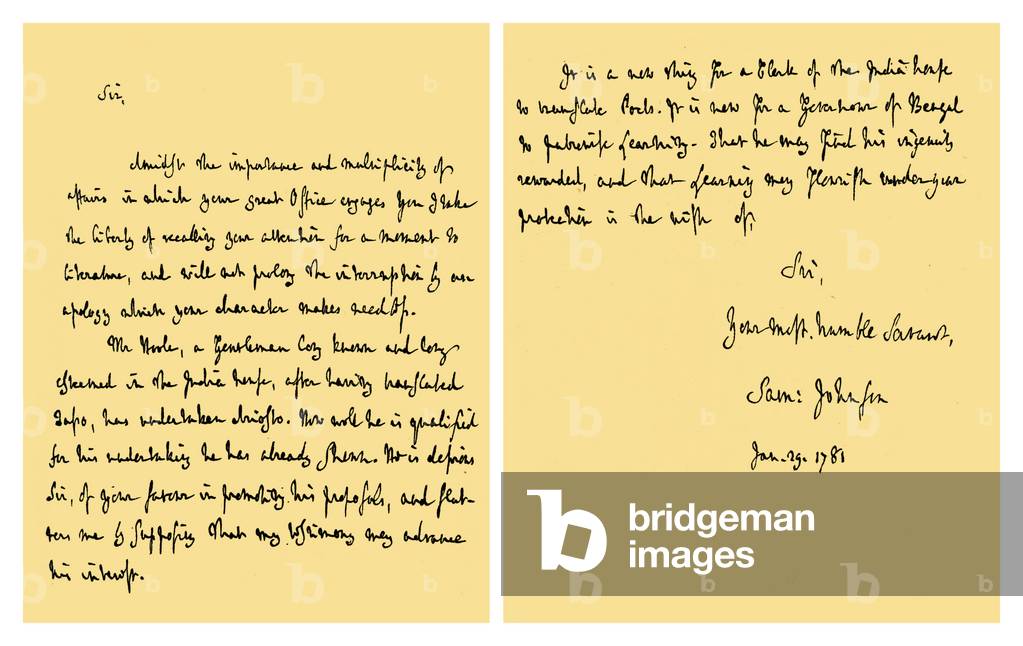 Sir,
Amidst the importance and multiplicity of
affairs in which your great Office engages you I take
the liberty of recalling your attention for a moment to
literature, and will not prolong the interruption by an
apology which your character makes needless.
Mr Hoole, a Gentleman long known and long
esteemed in the India house, after having translated
Tasso, has undertaken Ariosto. How well he is qualified
for his undertaking he has already shewn. He is desirous
Sir, of your favour in promoting his proposals, and flat-
ters me by supposing that my testimony may advance
his interest.
It is a new thing for a Clerk of the India house
to translate Poets. It is new for a Governour of Bengal
to patronise Learning. That he may find his ingenuity
rewarded, and that Learning may flourish under your
protection is the wish of,
Sir,
Your most humble Servant,
Sam: Johnson
Jan. 29. 1781
b bridgeman
images